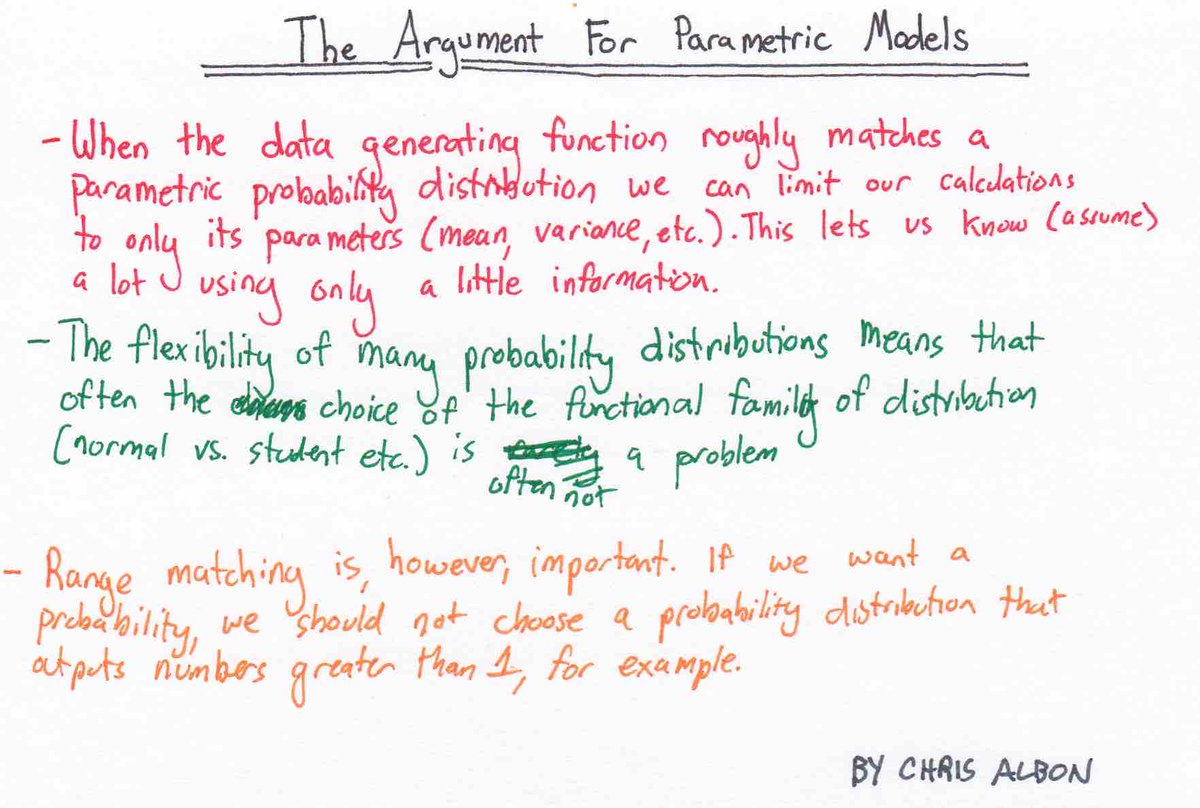 The Argument For Parametric Models
- When the data generating function roughly matches a
parametric probability distribution we can limit our calculations
to only its parameters (mean, variance, etc.). This lets us know (assume)
a lot using only a little information.
- The flexibility of many probability distributions means that
often the choice of the functional family of distribution
(normal vs. student etc.) is a problem
often not
- Range matching is, however, important. If we want a
probability, we should not choose a probability distribution that
outputs numbers greater than 1, for example.
BY CHRIS ALBON